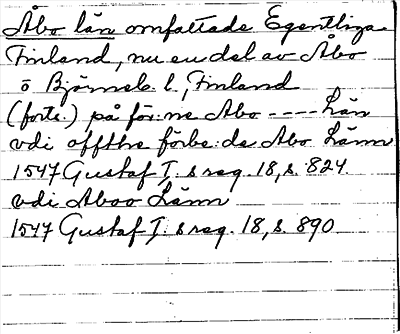 Åbo län omfattade Egentliga
Finland, nu en del av Åbo
o Björneb. l., Finland
(forts.) på för:ne Abo ---- Län
vdi offthe förbe:de Abo Länn
1547 Gustaf I:s reg. 18, s. 824
vdi Aboo Länn
1547 Gustaf I:s reg. 18, s. 890